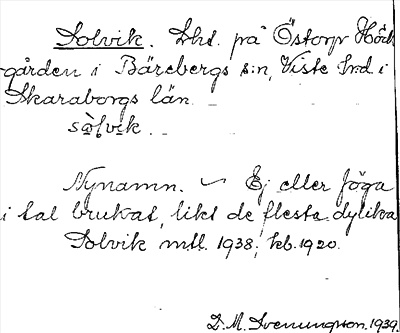 Solvik. Lht. på Östorp Höck
-gården i Bärebergs s:n, Viste hrd. i
Skaraborgs län.
sòlvik.
Nynamn. ~ Ej eller föga
i tal brukat, likt de flesta dylika
Solvik mtl. 1938, kb. 1920.
D. M. Svenungsson. 1939.